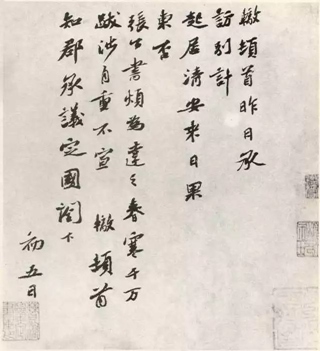 轍頓首昨日承
訪別計
起居清安來日果
東去
張公書煩為達之春寒千万
跋涉自重不宣 轍頓首
知郡承議定國閣下
初五日